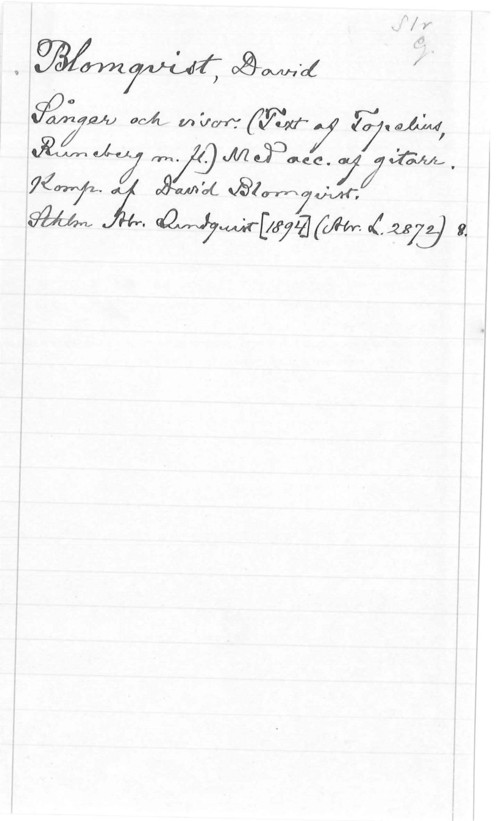 Str
g.
Blomqvist, David
Sånger och visor. (Text af Topelius,
Runeberg m. fl.) Med acc. af gitarr.
Komp. af David Blomqvist.
Sthlm Abr. Lundquist [1894] (Abr. L. 2872) 8.